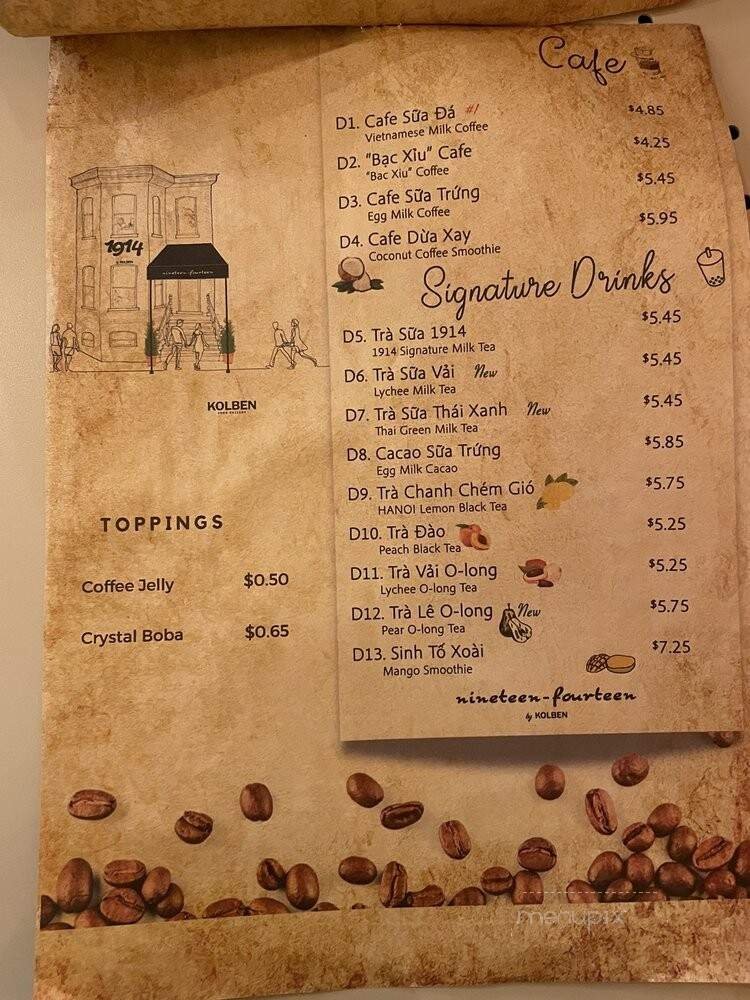 Cafe
D1. Cafe Sữa Đá #1 $4.85
Vietnamese Milk Coffee
D2. "Bạc Xỉu" Cafe $4.25
"Bac Xiu" Coffee
D3. Cafe Sữa Trứng $5.45
Egg Milk Coffee
D4. Cafe Dừa Xay $5.95
Coconut Coffee Smoothie
Signature Drinks
D5. Trà Sữa 1914 $5.45
1914 Signature Milk Tea
D6. Trà Sữa Vải New $5.45
Lychee Milk Tea
D7. Trà Sữa Thái Xanh New $5.45
Thai Green Milk Tea
D8. Cacao Sữa Trứng $5.85
Egg Milk Cacao
D9. Trà Chanh Chém Gió $5.75
HANOI Lemon Black Tea
D10. Trà Đào $5.25
Peach Black Tea
D11. Trà Vải O-long $5.25
Lychee O-long Tea
D12. Trà Lê O-long New $5.75
Pear O-long Tea
D13. Sinh Tố Xoài $7.25
Mango Smoothie
nineteen-fourteen
by KOLBEN
1914
nineteen-fourteen
KOLBEN
TOPPINGS
Coffee Jelly $0.50
Crystal Boba $0.65
menupix